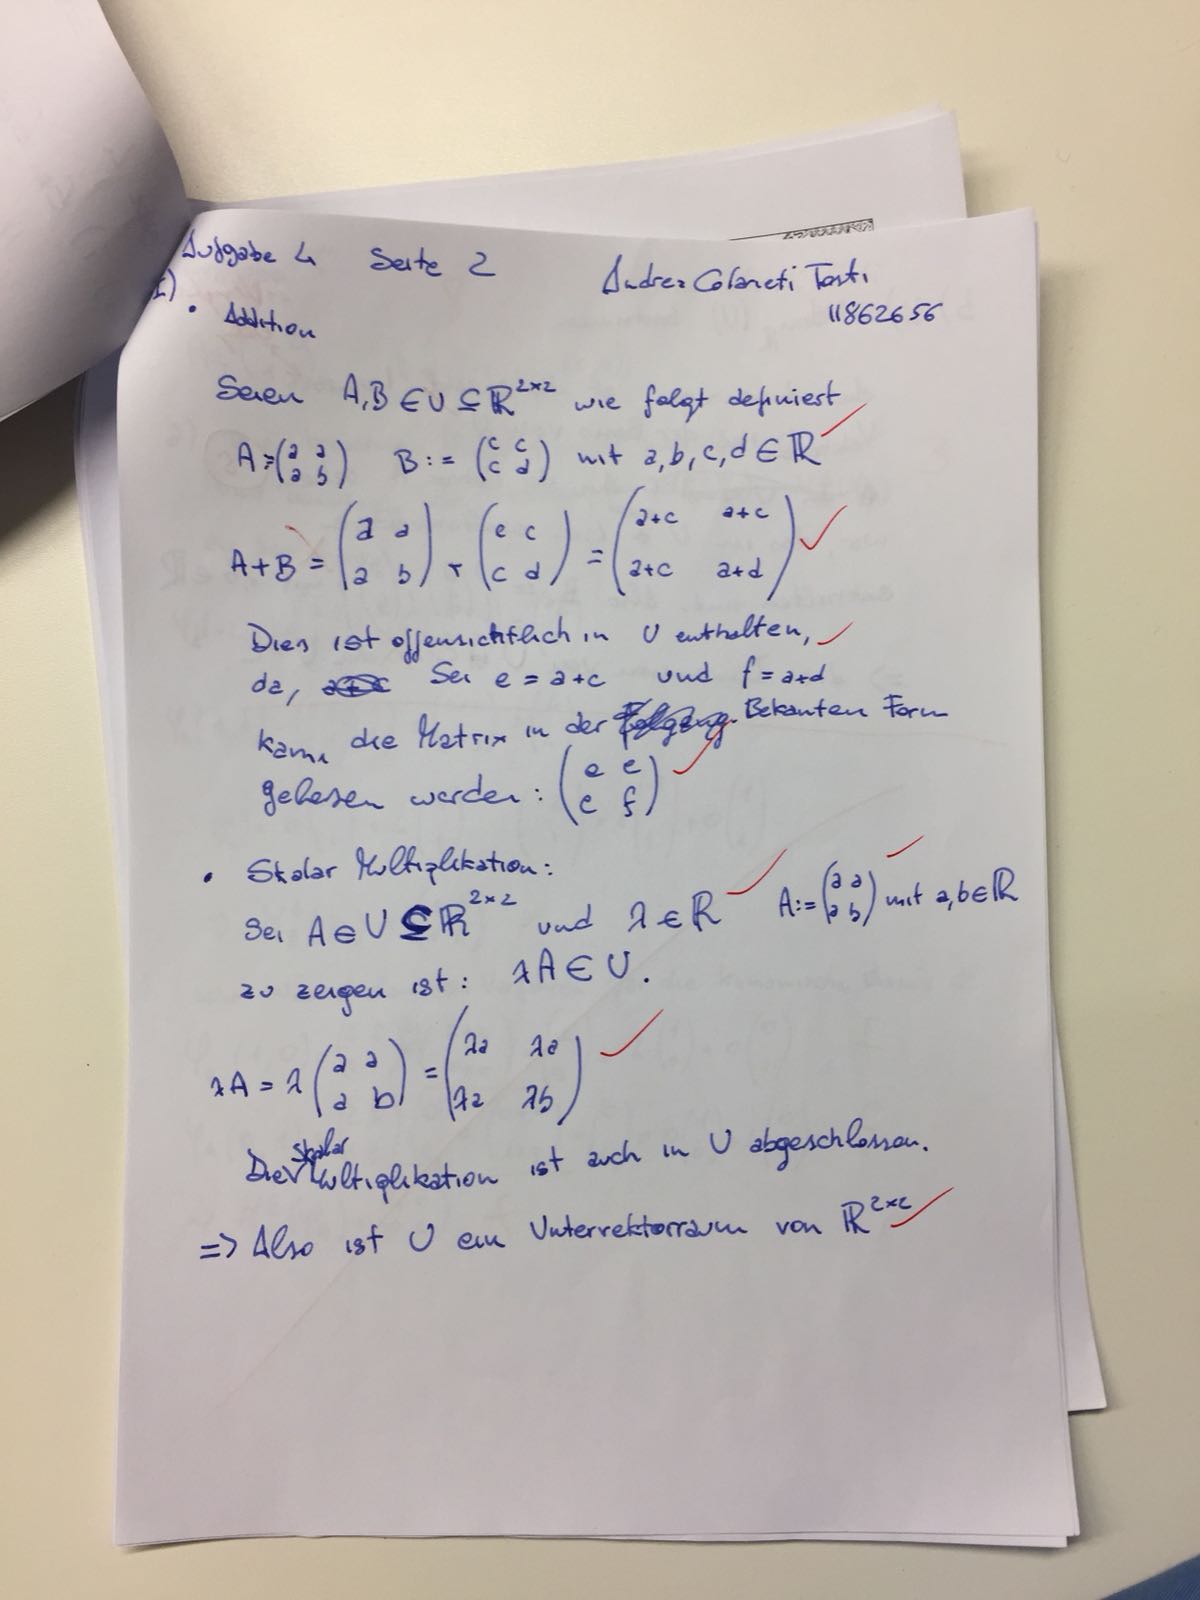 Aufgabe 4 Seite 2 Andrea Colaneti Tosti
I) 11862656
• Addition
Seien A,B ∈ U ⊆ ℝ^{2×2} wie folgt definiert
A := (a a / a b) B := (c c / c d) mit a,b,c,d ∈ ℝ
A+B = (a a / a b) + (c c / c d) = (a+c a+c / a+c a+d)
Dies ist offensichtlich in U enthalten,
da, Sei e = a+c und f = a+d
kann die Matrix in der Bekanten Form
gelesen werden: (e e / e f)
• Skalar Multiplikation:
Sei A ∈ U ⊆ ℝ^{2×2} und λ ∈ ℝ A := (a a / a b) mit a,b ∈ ℝ
zu zeigen ist: λA ∈ U.
λA = λ (a a / a b) = (λa λa / λa λb)
Die Skalar Multiplikation ist auch in U abgeschlossen.
=> Also ist U ein Untervektorraum von ℝ^{2×2}